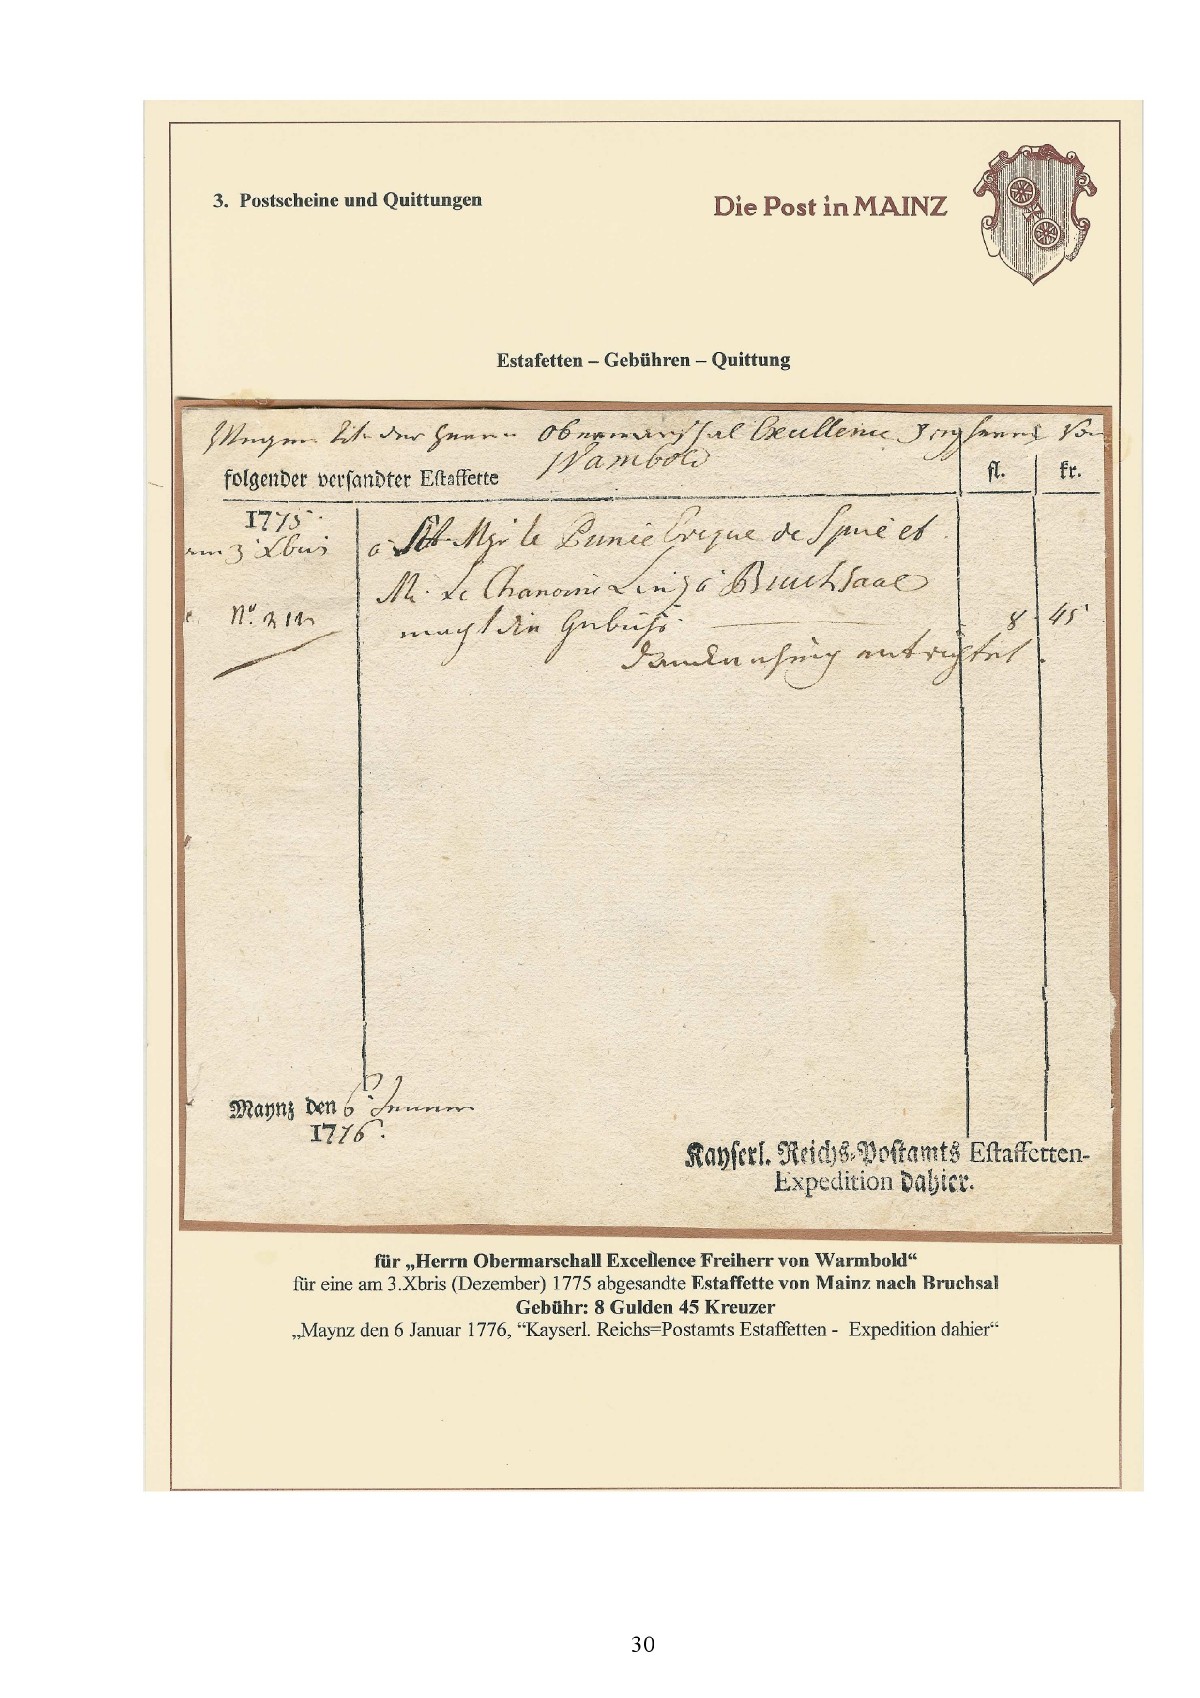 3. Postscheine und Quittungen
Die Post in MAINZ
Estafetten – Gebühren – Quittung
Obermarschal Excellence Freyherrn Von
Wambold
folgender versandter Estaffette
fl. kr.
1775.
3 Xbris à Mgr le Prince Eveque de Spire et
Mr. Le Chanoine Linz à Bruchsaal
No. 212 macht die Gebühr 8 45
entrichtet.
Maynz den 6. Jenner
1776.
Kayserl. Reichs-Postamts Estaffetten-
Expedition dahier.
für „Herrn Obermarschall Excellence Freiherr von Warmbold“
für eine am 3.Xbris (Dezember) 1775 abgesandte Estaffette von Mainz nach Bruchsal
Gebühr: 8 Gulden 45 Kreuzer
„Maynz den 6 Januar 1776, “Kayserl. Reichs=Postamts Estaffetten - Expedition dahier“
30